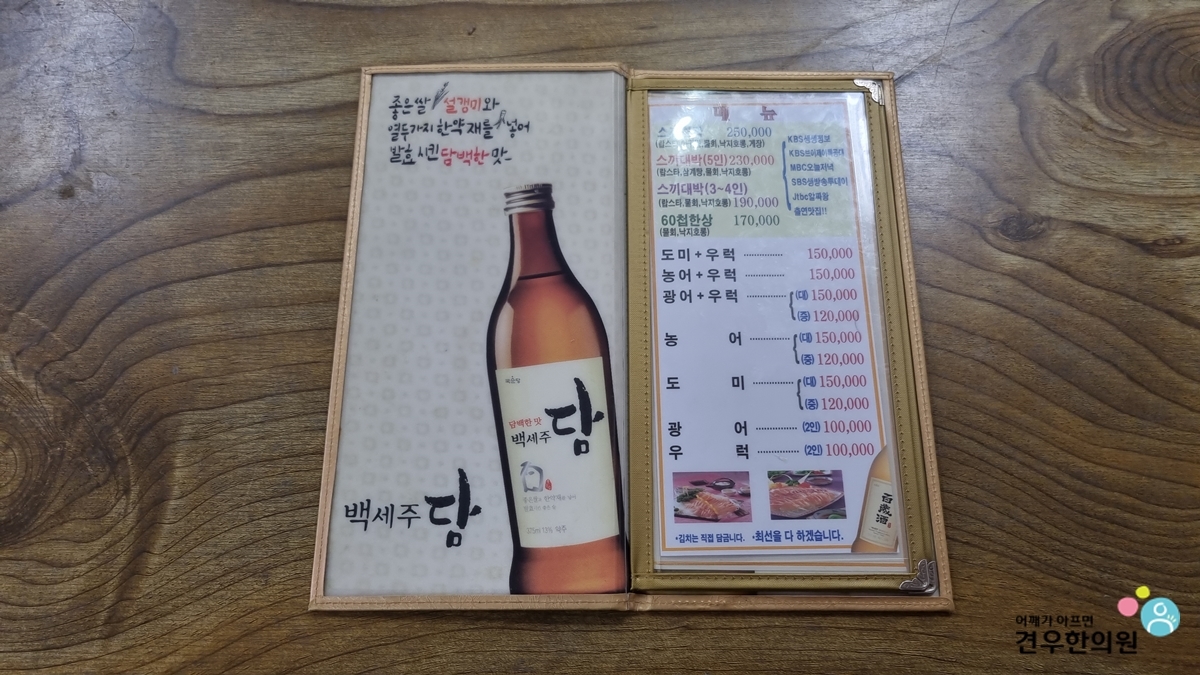 좋은쌀 설갱미와
열두가지 한약재를 넣어
발효시킨 담백한 맛
담백한 맛
백세주 담
백세주 담
메 뉴
250,000
스끼대박(5인) 230,000
(랍스타, 삼계탕, 물회, 낙지호롱)
스끼대박(3~4인)
(랍스타, 물회, 낙지호롱) 190,000
60첩한상 170,000
(물회, 낙지호롱)
KBS생생정보
MBC오늘저녁
SBS생방송투데이
출연맛집!!
도미+우럭 150,000
농어+우럭 150,000
광어+우럭 (대) 150,000
(중) 120,000
농 어 (대) 150,000
(중) 120,000
도 미 (대) 150,000
(중) 120,000
광 어 (2인) 100,000
우 럭 (2인) 100,000
•김치는 직접 담금니다. •최선을 다 하겠습니다.
百歲酒
어깨가 아프면
견우한의원